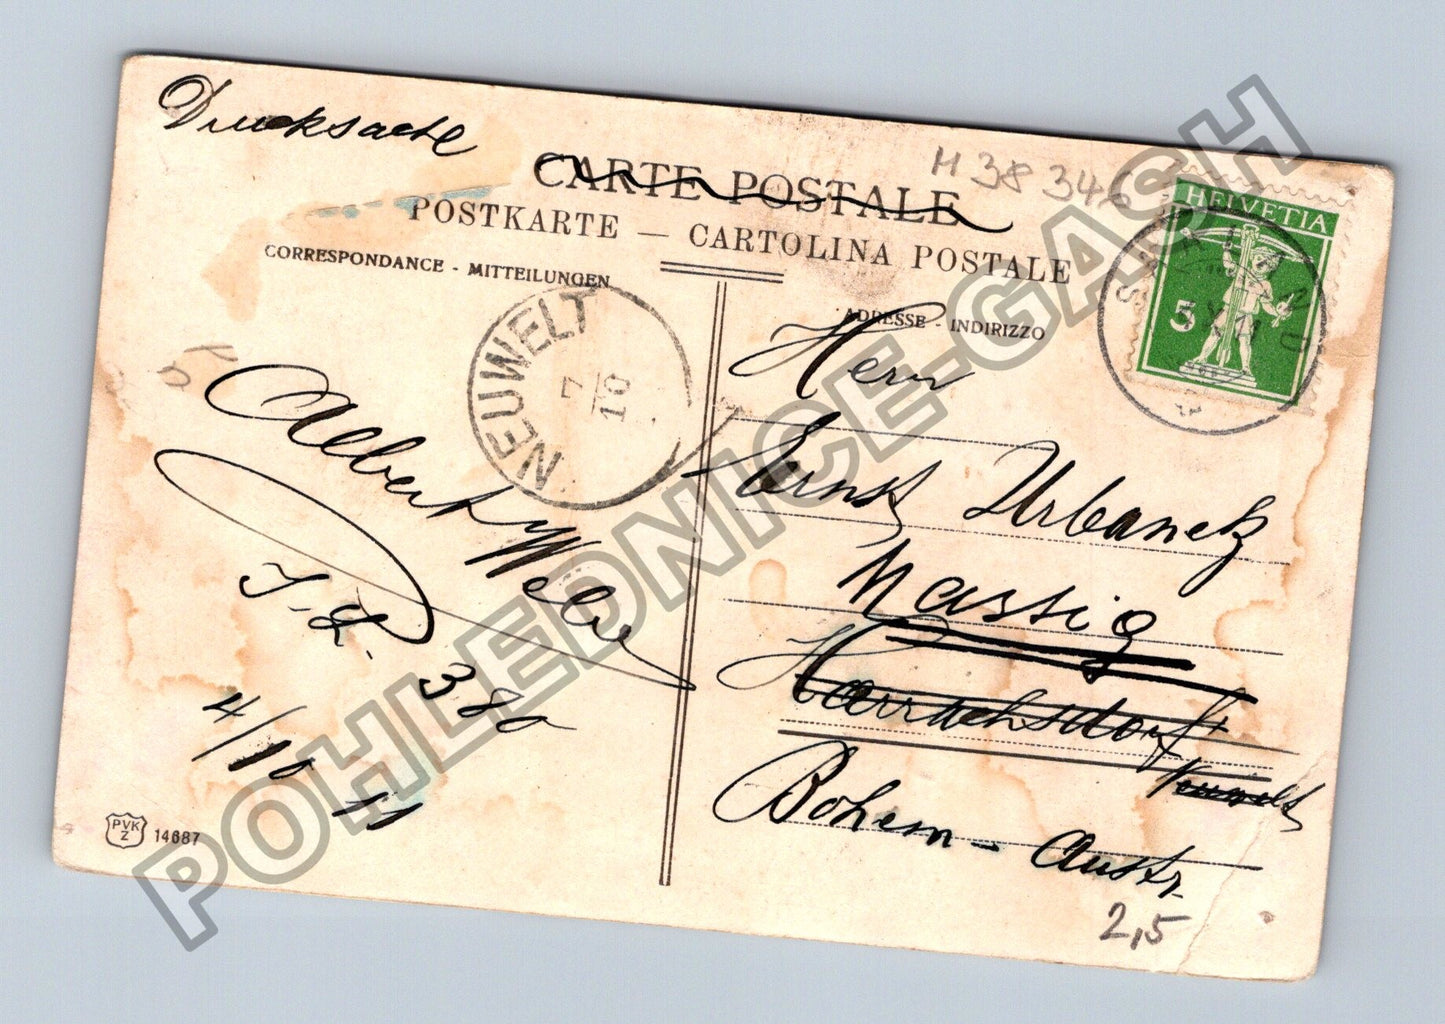 Drucksache
CARTE POSTALE
POSTKARTE — CARTOLINA POSTALE
CORRESPONDANCE - MITTEILUNGEN
ADRESSE - INDIRIZZO
H 38 346
HELVETIA
5
NEUWELT
7
10
Herrn
Ernst Urbanek
Massig
Harrachsdorf
Neuwelt
Böhem - Austr.
2,5
Albert
380
4/10 11
PVK
Z
14687
POHLEDNICE-GASH